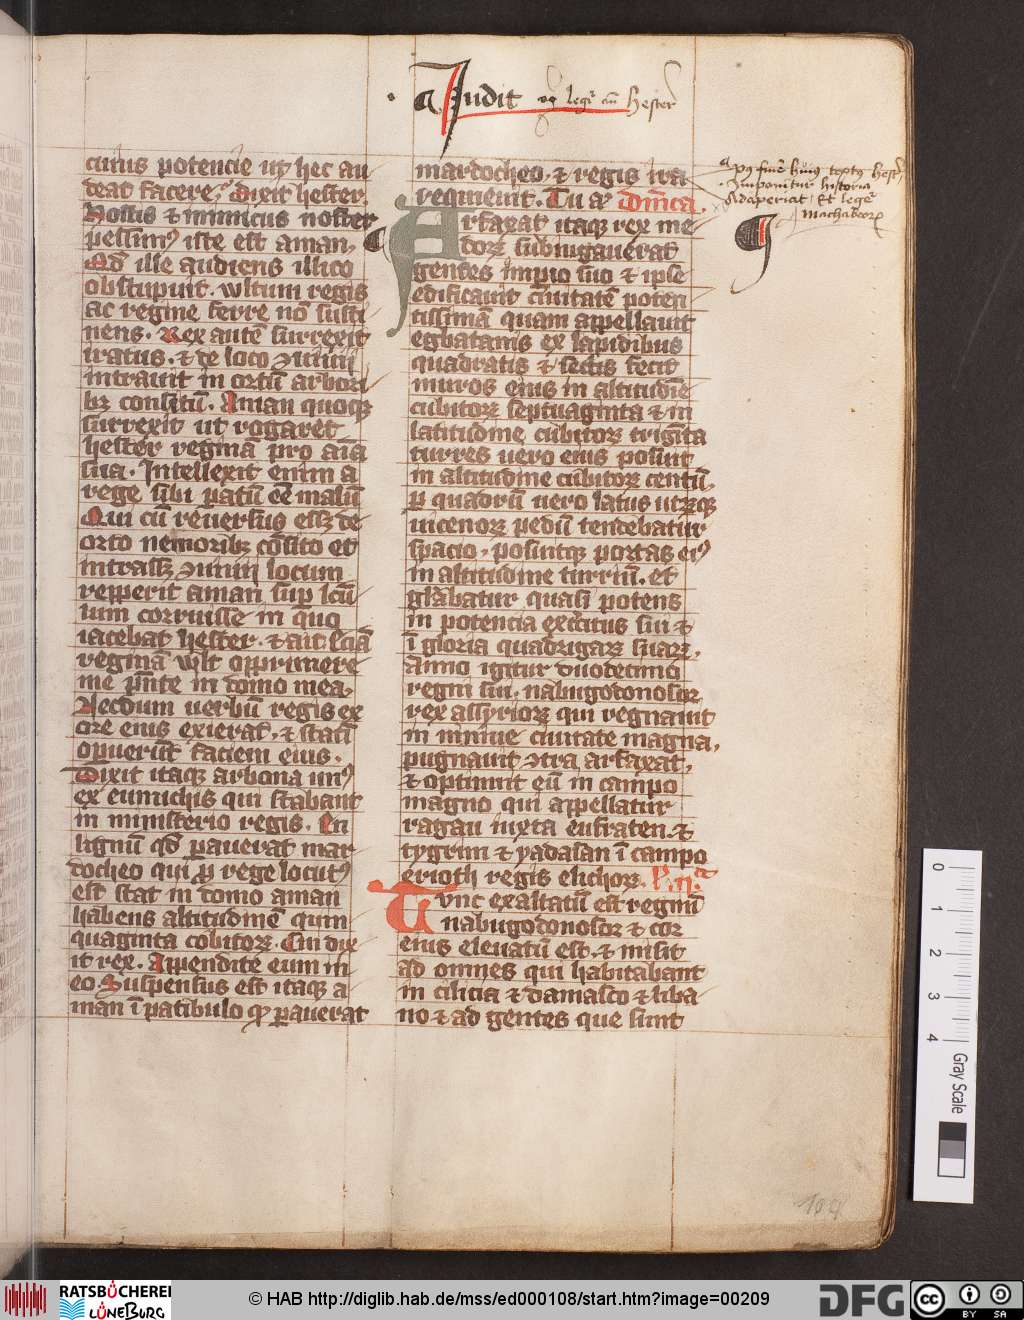 Judit legi Hester
cuius potencie ut hec au
deat facere. Dixit hester.
Hostis & inimicus noster
pessimꝰ iste est aman,
Qd ille audiens illico
obstupuit. wltum regis
ac regine ferre nō susti
nens. Rex autē surrexit
iratus. & de loco ꝯuiuij
intrauit in ortū arbori
bꝫ consitū. Aman quoqꝫ
surrexit ut rogaret
hester reginā pro aīa
sua. Intellexit enim a
rege sibi patū eē malū
Qui cū reuersus essꝫ de
orto nemoribꝫ cōsito et
intrassꝫ ꝯuiuij locum
repperit aman suꝑ lcū
lum corruisse in quo
iacebat hester. & ait. Eciā
reginā wlt opprimere
me pn̄te in domo mea.
Necdum uerbū regis ex
ore eius exierat, & stati
opuerūt faciem eius.
Dixit itaqꝫ arbona unꝰ
ex eunuchis qui stabant
in ministerio regis. En
lignū qd ꝑauerat mar
docheo qui ꝓ rege locutꝰ
est stat in domo aman
habens altitudinē quin
quaginta cobitoꝝ. Cui dix
it rex. Appendite eum in
eo. Suspensus est itaqꝫ a
man ī patibulo qd ꝑauerat
mardocheo. & regis ira
requieuit. Tu aꝰ Dn̄ica.
Arfaxat itaqꝫ rex me
doꝝ subiugauerat
gentes impio suo & ipse
edificauit ciuitatē poten
tissimā quam appellauit
egbatanis ex lapidibus
quadratis & sectis fecit
muros eius in altitudīe
cubitoꝝ septuaginta & in
latitudine cubitoꝝ trigīta
turres uero eius posuit
in altitudine cubitoꝝ centū.
ꝑ quadrū uero latus utꝝqꝫ
uicenoꝝ pedū tendebatur
spacio. posuitqꝫ portas eiꝰ
in altitudine turriū. et
glabatur quasi potens
in potencia exercitus sui &
ī gloria quadrigaꝝ suaꝝ.
Anno igitur duodecimo
regni sui. nabugodonosor
rex assyrioꝝ qui regnauit
in niniue ciuitate magna,
pugnauit ꝯtra arfaxat,
& optinuit eū in campo
magno qui appellatur
ragau iuxta eufraten. &
tygrim & yadasan ī campo
erioth regis elichoꝝ.
Tunc exaltatū est regnū
nabugodonosor & cor
eius eleuatū est. & misit
ad omnes qui habitabant
in cilicia & damasco & liba
no & ad gentes que sunt
Pꝰ finē huiꝰ textꝰ hester
Imponitur historia
Adaperiat. Et legēr
Machabeoꝝ
104
0 1 2 3 4
Gray Scale
RATSBÜCHEREI
LÜNEBURG
© HAB http://diglib.hab.de/mss/ed000108/start.htm?image=00209
DFG
cc
BY SA